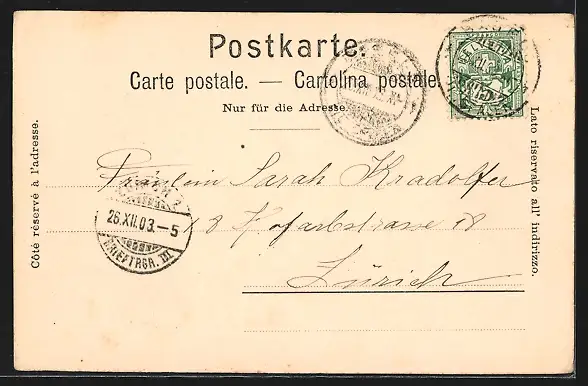 Postkarte.
Carte postale. — Cartolina postale.
Nur für die Adresse.
Côté réservé à l'adresse.
Lato riservato all' indirizzo.
HELVETIA
Fräulein Sarah Kradolfer
18 Hofarbstrasse 18
Zürich
26.XII.03.-5
BRIEFTRGR. III